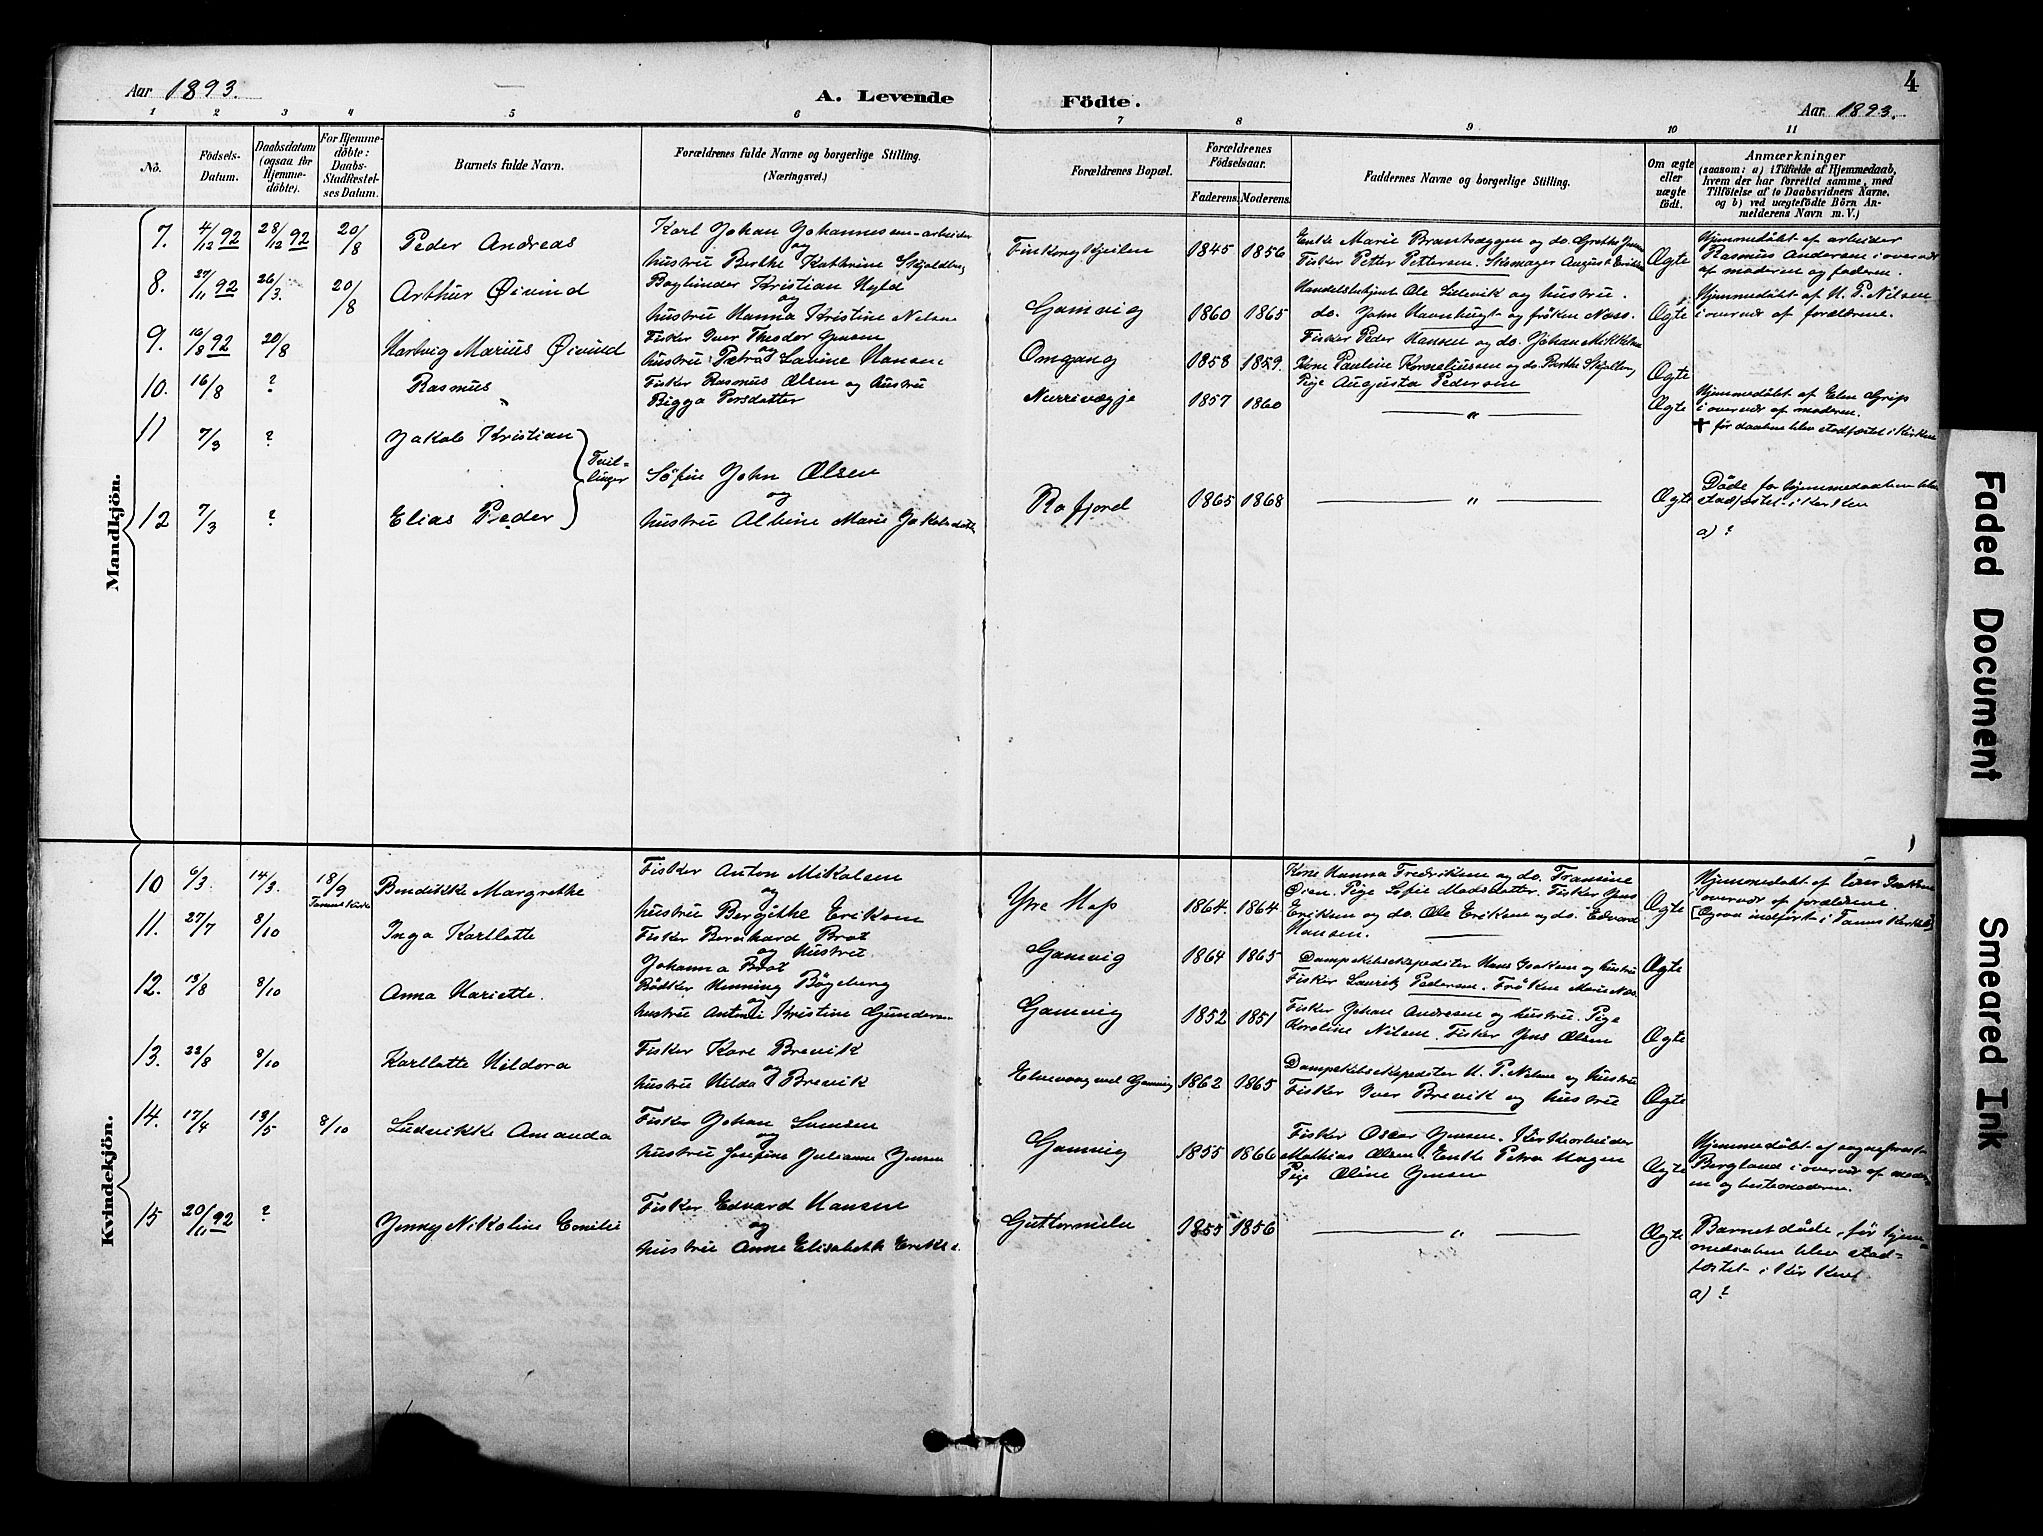 Aar 1893.
A. Levende Födte.
4
Aar 1893.
1 2 3 4 5 6 7 8 9 10 11
No.
Födsels-
Datum.
Daabsdatum
(ogsaa for
Hjemme-
döbte).
For Hjemme-
döbte:
Daabs-
Stadfæstel-
ses Datum.
Barnets fulde Navn.
Forældrenes fulde Navne og borgerlige Stilling.
(Næringsvei.)
Forældrenes Bopæl.
Forældrenes
Födselsaar.
Faderens. Moderens.
Faddernes Navne og borgerlige Stilling.
Om ægte
eller
uægte
født.
Anmærkninger
(saasom: a) i Tilfælde af Hjemmedaab,
hvem der har forrettet samme, med
Tilföielse af to Daabsvidners Navne.
og b) ved uægtefödte Börn An-
melderens Navn m. V.)
Mandkjön.
7. 4/12 92 28/12 92 20/8 Peder Andreas
Karl Johan Johannessen arbeider
og
hustru Berthe Kathrine Skjoldberg
Finkongkjeilen 1845 1856
Enke Marie Brantsæggen og do. Grethe Jensen
Fisker Petter Pettersen. Skomager August Eriksen
Ægte
Hjemmedøbt af arbeider
Rasmus Andersen i overvær
af moderen og faderen.
8. 27/11 92 26/3. 20/8 Arthur Øivind
Bogbinder Kristian Hyld
og
hustru Hanna Kristine Nelsen
Gamvig 1860 1865
Handelsbetjent Ole Lillevik og hustru.
do. John Havnhugt og frøken Næss.
Ægte
Hjemmedøbt af H. P. Nilsen
i overvær af forældrene.
9. 16/8 92 20/8 Hartvig Marius Øivind
Fisker Iver Theodor Jensen
og
hustru Petra Lavine Hansen
Omgang 1858 1859.
Fisker Peder Hansen og do. Johan Mikkelsen
Kone Pauline Korneliussen og do. Berthe
Pige Augusta Pedersen
Ægte
10. 16/8 ? Rasmus "
Fisker Rasmus Olsen og hustru
Bigga Persdatter
1857 1860
"
Ægte
Hjemmedøbt af Elen Grip
i overvær af moderen.
✝ før daaben blev stadfæstet i Kirken
11 7/3 ? Jakob Kristian
Tvil-
linger
Sofie John Olsen
og
12 7/3 ? Elias Peder
hustru Albine Marie Jakobsdatter
Rafjord 1865 1868
"
Ægte
Døde før hjemmedaaben blev
stadfæstet i Kirken
a) ?
Kvindekjön.
10 6/3. 14/3. 18/9 Bendikke Margrethe
Fisker Anton Mikalsen
og
hustru Bergithe Eriksen
Yre Hop 1864. 1864
Kone Hanna Fredriksen og do. Fransine
Pige Sofie Madsdatter. Fisker Jens
Eriksen og do. Ole Eriksen og do. Edvard
Hansen.
Ægte
Hjemmedøbt af Iver Isaksen
i overvær af forældrene.
(Ogsaa indført i Tanens Kirkeb.)
11. 27/7 8/10 Inga Karllotte
Fisker Bernhard Brat
og hustru
Johanna Brat
Gamvig 1864 1865
Dampskibsekspeditør Hans Isaksen og hustru
Fisker Lauritz Pedersen. Frøken Marie Næs.
Ægte
12. 13/8 8/10 Anna Hariette.
Bødker Henning Bøgeberg
og
hustru Antoni Kristine Gundersen
Gamvig 1852 1851
Fisker Johan Andresen og hustru. Pige
Karoline Nilsen. Fisker Jens Olsen
Ægte
13. 22/8 8/10 Karllotte Hildora
Fisker Kare Brevik
og
hustru Hilda Brevik
Elvevaag ved Gamvig 1862 1865
Dampskibsekspeditør H. P. Nilsen og hustru
Fisker Iver Brevik og hustru
Ægte
14. 17/4 13/5 8/10 Ludvikke Amanda
Fisker Johan
og
hustru Josefine Julianne Jensen
Gamvig 1855 1866
Fisker Oscar Jensen. Kirkearbeider
Mathias Olsen. Enke Petra Hagen
Pige Oline Jensen
Ægte
Hjemmedøbt af sogneprest
Bergland i overvær af moder-
en og bestemoderen.
15 20/11 92 ? Jenny Nikoline Emilie
Fisker Edvard Hansen
og
hustru Anne Elisabeth Eriks.
1855 1856
"
Ægte
Barnet døde, før hjem-
medaaben blev stad-
fæstet i Kirken
a) ?
Faded Document
Smeared Ink